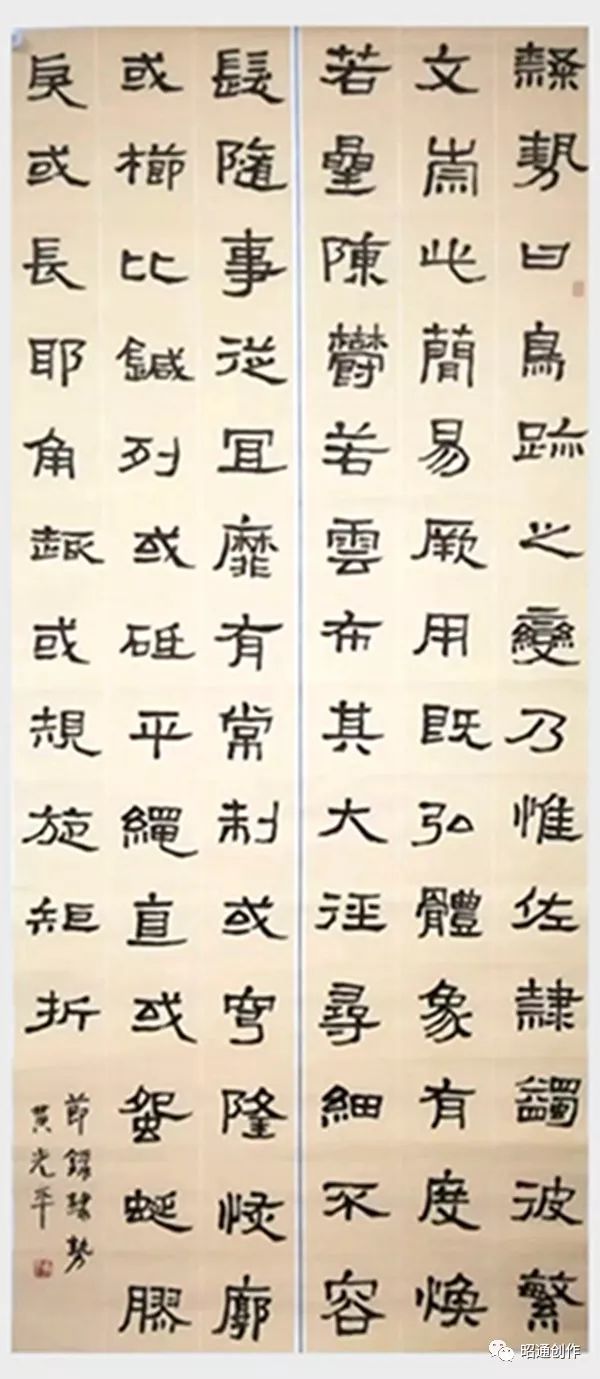 隸勢曰鳥跡之變乃惟佐隸蠲彼繁
文崇此簡易厥用既弘體象有度煥
若星陳鬱若雲布其大徑尋細不容
髮隨事從宜靡有常制或穹隆恢廓
或櫛比鍼列或砥平繩直或蜿蜒膠
戾或長耶角趣或規旋矩折
節錄隸勢
黃光平
昭通创作